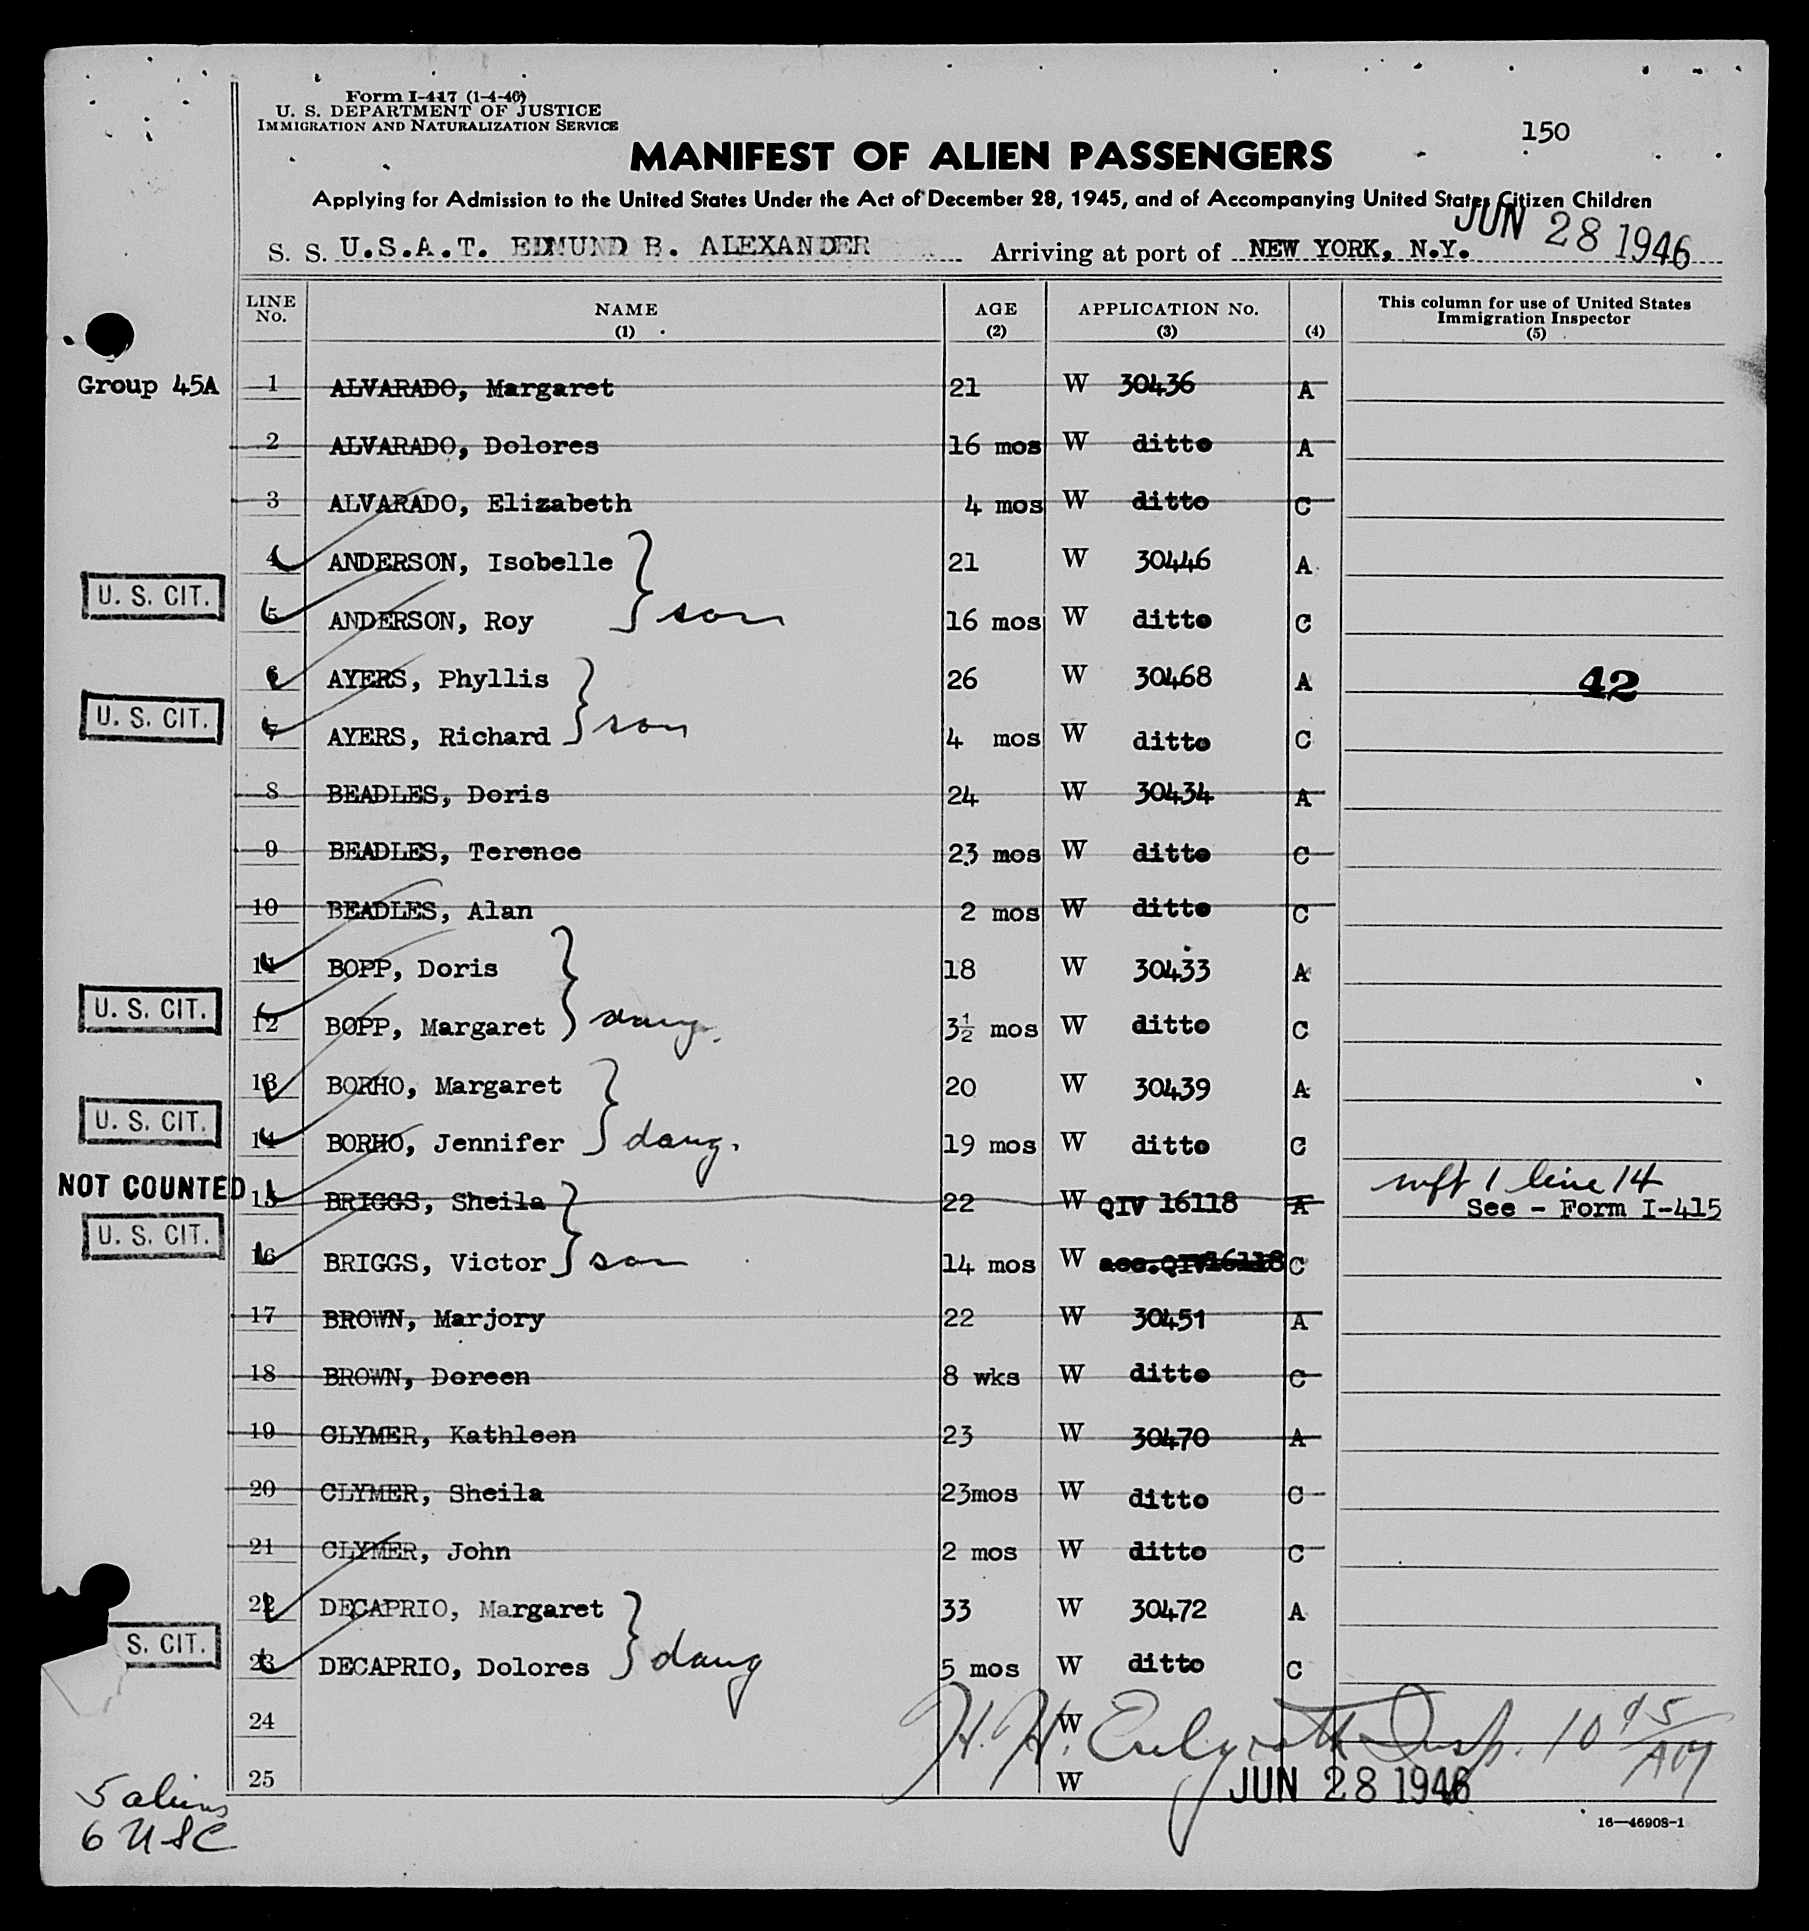 Form I-417 (1-4-46)
U. S. DEPARTMENT OF JUSTICE
IMMIGRATION AND NATURALIZATION SERVICE
150
MANIFEST OF ALIEN PASSENGERS
Applying for Admission to the United States Under the Act of December 28, 1945, and of Accompanying United States Citizen Children
JUN 28 1946
S. S. U.S.A.T. EDMUND B. ALEXANDER Arriving at port of NEW YORK, N.Y.
LINE No. NAME (1) AGE (2) APPLICATION No. (3) (4) This column for use of United States Immigration Inspector (5)
Group 45A 1 ALVARADO, Margaret 21 W 30436 A
2 ALVARADO, Dolores 16 mos W ditto A
3 ALVARADO, Elizabeth 4 mos W ditto C
4 ANDERSON, Isobelle 21 W 30446 A
U. S. CIT. 5 ANDERSON, Roy } son 16 mos W ditto C
6 AYERS, Phyllis 26 W 30468 A 42
U. S. CIT. 7 AYERS, Richard } son 4 mos W ditto C
8 BEADLES, Doris 24 W 30434 A
9 BEADLES, Terence 23 mos W ditto C
10 BEADLES, Alan 2 mos W ditto C
11 BOPP, Doris 18 W 30433 A
U. S. CIT. 12 BOPP, Margaret } daug. 3½ mos W ditto C
13 BORHO, Margaret 20 W 30439 A
U. S. CIT. 14 BORHO, Jennifer } daug. 19 mos W ditto C
NOT COUNTED 15 BRIGGS, Sheila 22 W QIV 16118 A mft 1 line 14 See - Form I-415
U. S. CIT. 16 BRIGGS, Victor } son 14 mos W acc.QIV16118 C
17 BROWN, Marjory 22 W 30451 A
18 BROWN, Doreen 8 wks W ditto C
19 CLYMER, Kathleen 23 W 30470 A
20 CLYMER, Sheila 23mos W ditto C
21 CLYMER, John 2 mos W ditto C
22 DECAPRIO, Margaret 33 W 30472 A
S. CIT. 23 DECAPRIO, Dolores } daug 5 mos W ditto C
24 W H. H. Insp. 10 45/AM
25 W JUN 28 1946
5 aliens
6 USC
16—46908-1